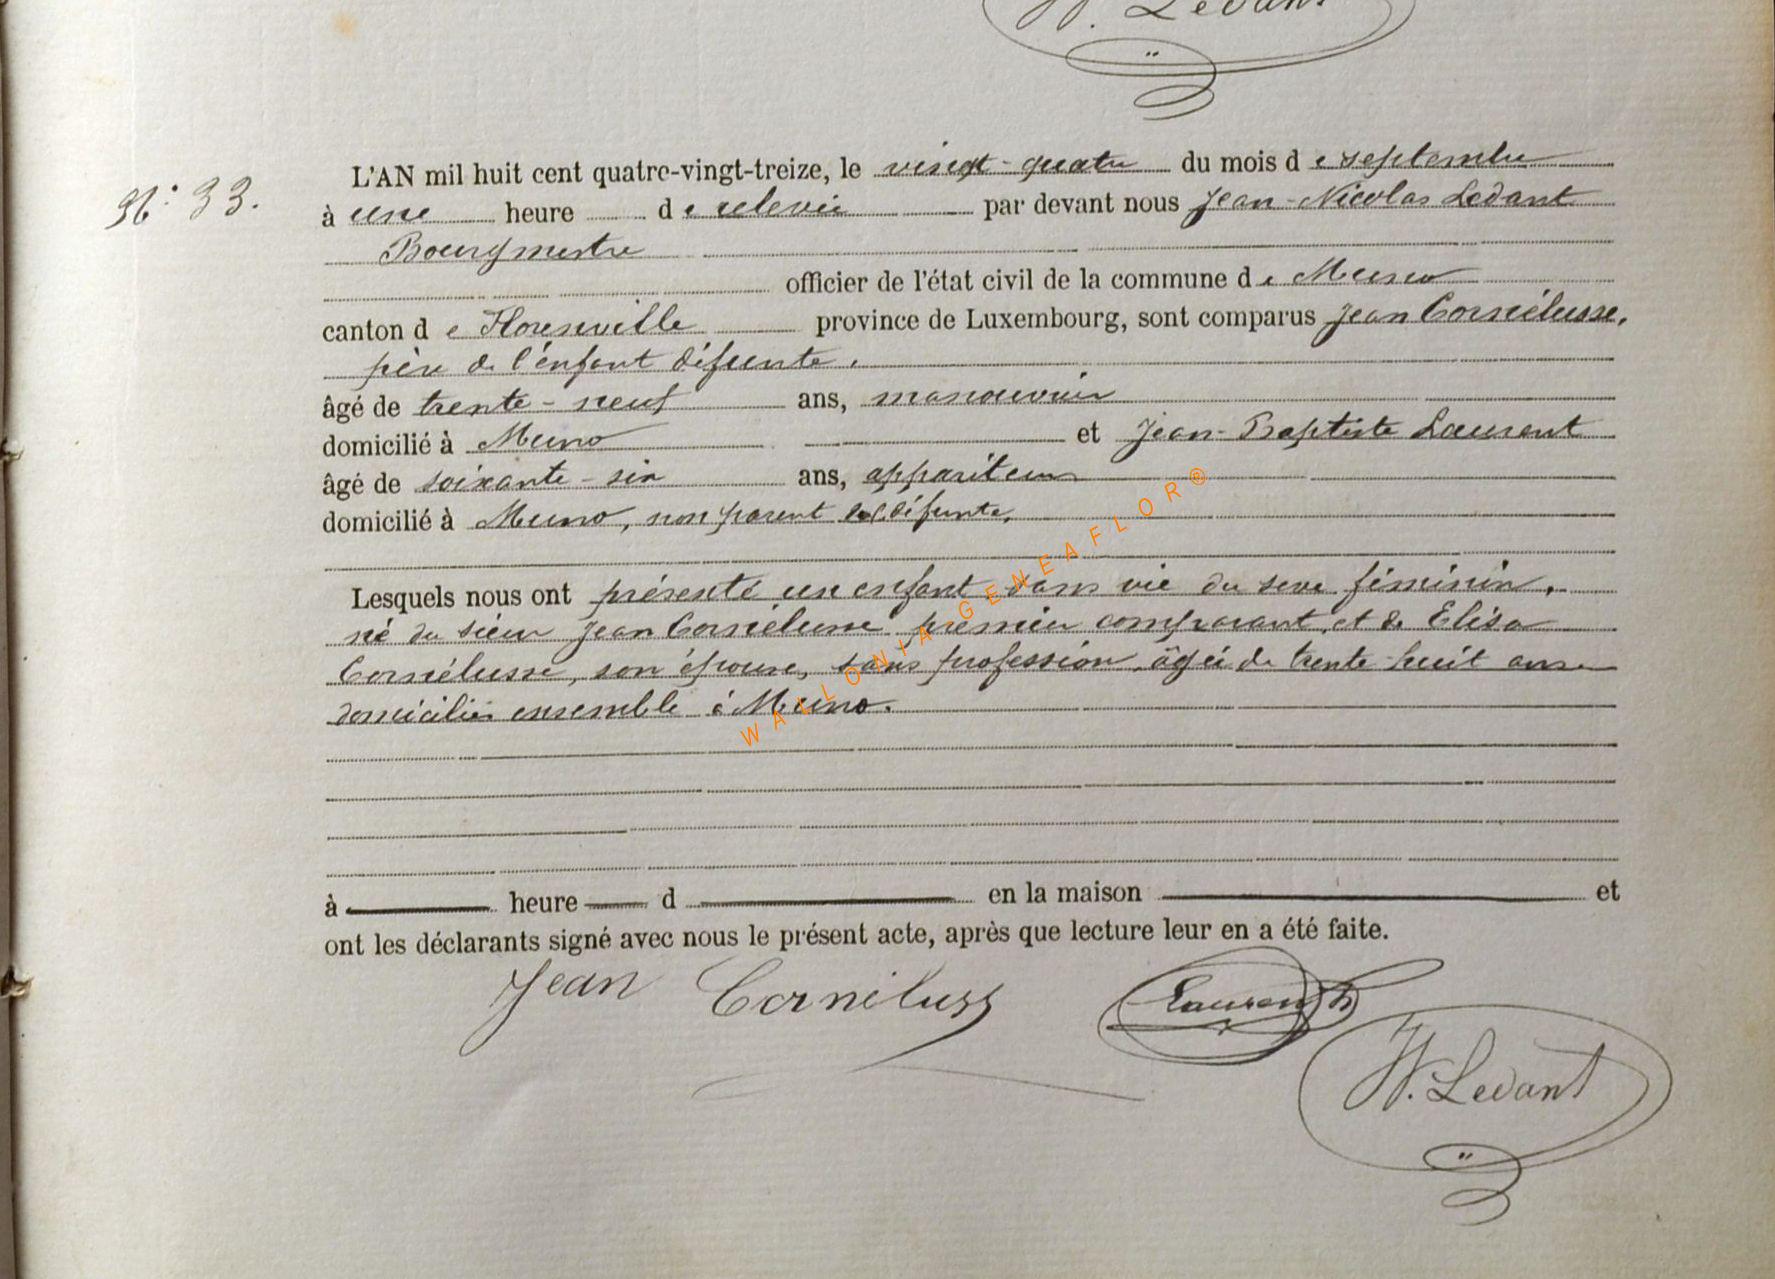 N. Ledant
L'AN mil huit cent quatre-vingt-treize, le vingt-quatre du mois de septembre
N° 33.
à une heure de relevée par devant nous Jean-Nicolas Ledant
Bourgmestre
officier de l'état civil de la commune de Muno
canton de Florenville province de Luxembourg, sont comparus Jean Cornélusse,
père de l'enfant défunte.
âgé de trente-neuf ans, manouvrier
domicilié à Muno et Jean-Baptiste Laurent
âgé de soixante-six ans, appariteur
domicilié à Muno, non parent défunte,
Lesquels nous ont présenté un enfant sans vie du sexe féminin,
né du sieur Jean Cornélusse premier comparant, et de Elisa
Cornélusse, son épouse, sans profession, âgée de trente-huit ans
domiciliés ensemble à Muno.
à heure d en la maison et
ont les déclarants signé avec nous le présent acte, après que lecture leur en a été faite.
Jean Cornéluss Laurent
N. Ledant
WALLONIA GENEAFLOR®